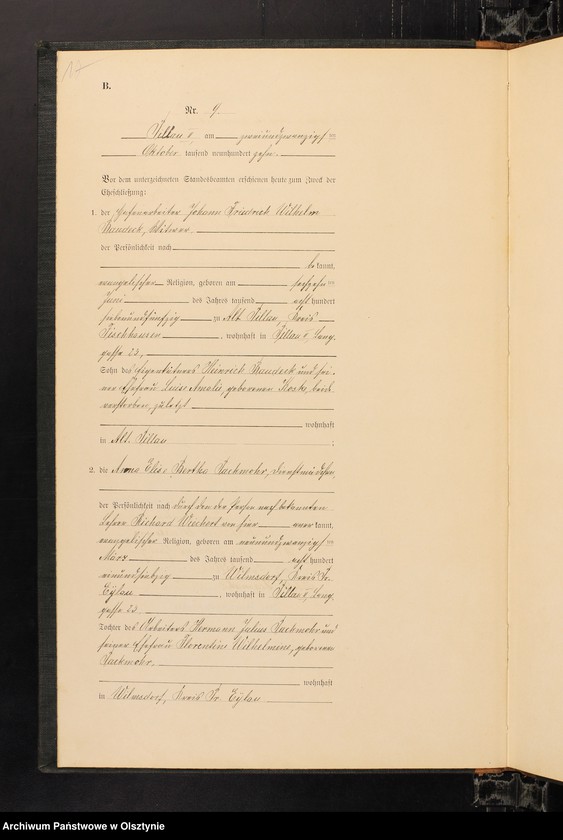 17
B.
Nr. 9.
Pillau II am zweiundzwanzigsten
Oktober tausend neunhundert zehn
Vor dem unterzeichneten Standesbeamten erschienen heute zum Zweck der
Eheschließung:
1. der Hafenarbeiter Johann Friedrich Wilhelm
Witwer,
der Persönlichkeit nach
be kannt,
evangelischer Religion, geboren am sechzehnten
Juni des Jahres tausend acht hundert
siebenundfünfzig zu Alt Pillau, Kreis
Fischhausen, wohnhaft in Pillau II, Lang-
gasse 23,
Sohn des Eigentümers Heinrich und sei-
ner Ehefrau Luise Amalie, geborenen beide
verstorben, zuletzt
wohnhaft
in Alt. Pillau
;
2. die Anna Elise Bertha Sackmohr,
der Persönlichkeit nach durch den der Person nach bekannten
Lehrer Richard von hier aner kannt,
evangelischer Religion, geboren am neunundzwanzigsten
März des Jahres tausend acht hundert
zu Wilmsdorf, Kreis Pr.
Eylau, wohnhaft in Pillau II, Lang-
gasse 23
Tochter des Arbeiters Hermann Julius Sackmohr und
seiner Ehefrau Florentine Wilhelmine, geborenen
Sackmohr,
wohnhaft
in Wilmsdorf, Kreis Pr. Eylau
Archiwum Państwowe w Olsztynie